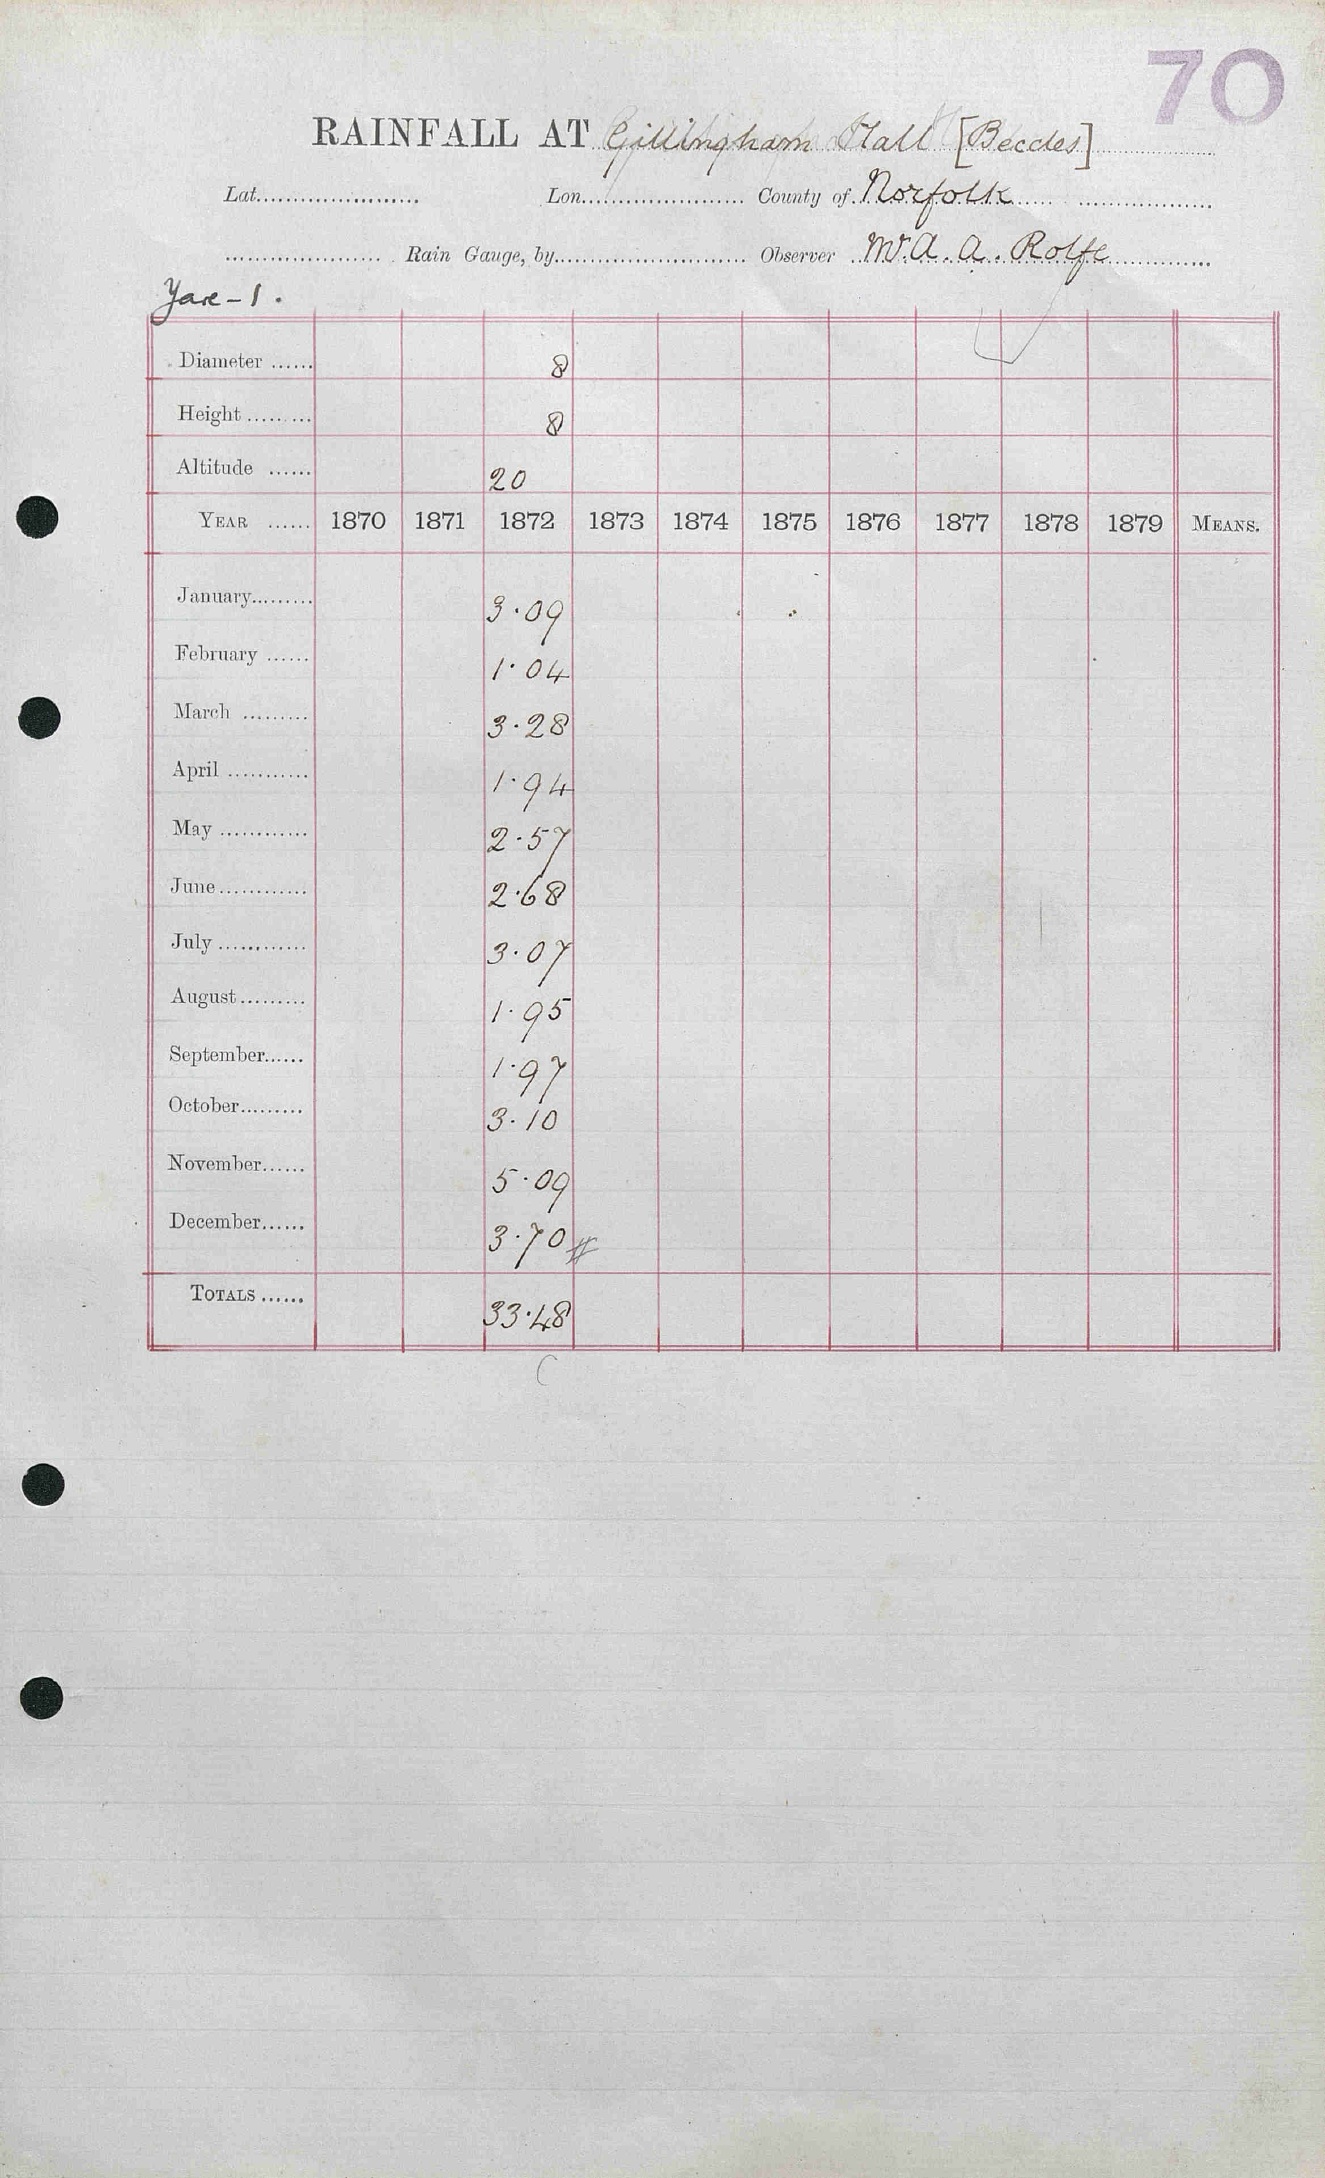 70
RAINFALL AT Gillingham Hall [Beccles]
Lat. Lon. County of Norfolk
Rain Gauge, by Observer Mr. A. A. Rolfe
Yare - 1.
Diameter 8
Height 8
Altitude 20
YEAR 1870 1871 1872 1873 1874 1875 1876 1877 1878 1879 MEANS.
January 3.09
February 1.04
March 3.28
April 1.94
May 2.57
June 2.68
July 3.07
August 1.95
September 1.97
October 3.10
November 5.09
December 3.70 #
TOTALS 33.48